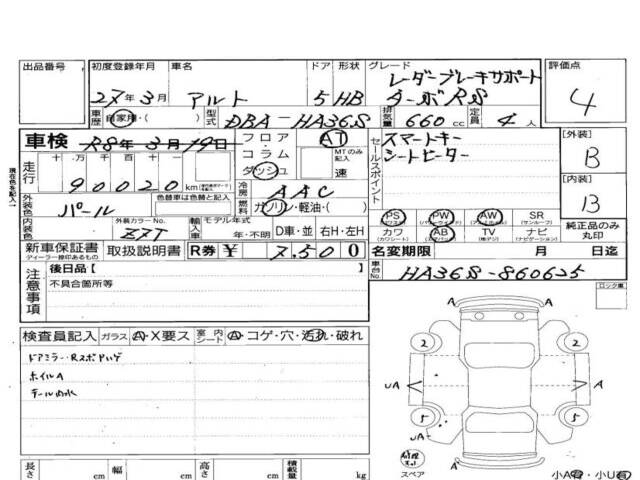 出品番号 初度登録年月 車名 ドア 形状 グレード 評価点
レーダーブレーキサポート
27年3月 アルト 5 HB ターボRS 4
車歴 自家用・( ) 型式 DBA-HA36S 排気量 660 cc 定員 4 人
車検 R8年3月19日 フロア AT スマートキー [外装]
コラム MTのみ記入 シートヒーター B
走行 十 万 千 百 十 一 ダッシュ 速 セールスポイント
90020 km 冷房 AAC [内装]
外装色 パール 色替車は色替と記入 燃料 ガソリン・軽油・( ) B
内装色 外装カラーNo. ZVT 輸入車 モデル年式 年・不明 D車・並 右H・左H
PS PW AW SR
(サンルーフ)
カワ AB TV ナビ 純正品のみ丸印
(カワシート) (エアバック) (地デジ) (ナビゲーション)
新車保証書 取扱説明書 R券 ¥ 7,500 名変期限 月 日迄
ディーラー捺印あるもの
車台No. HA36S-860635
注意事項 後日品【 】
不具合箇所等
ロック裏
検査員記入 ガラス A・X要ス 室内シート A・コゲ・穴・汚れ・破れ
ドアミラー・Rスポハゲ
ホイルA
テール内水
2 2
UA A
5 5
UA
スペア
長さ cm 幅 cm 高さ cm 積載量 kg
小A有・小U有
現在色を記入